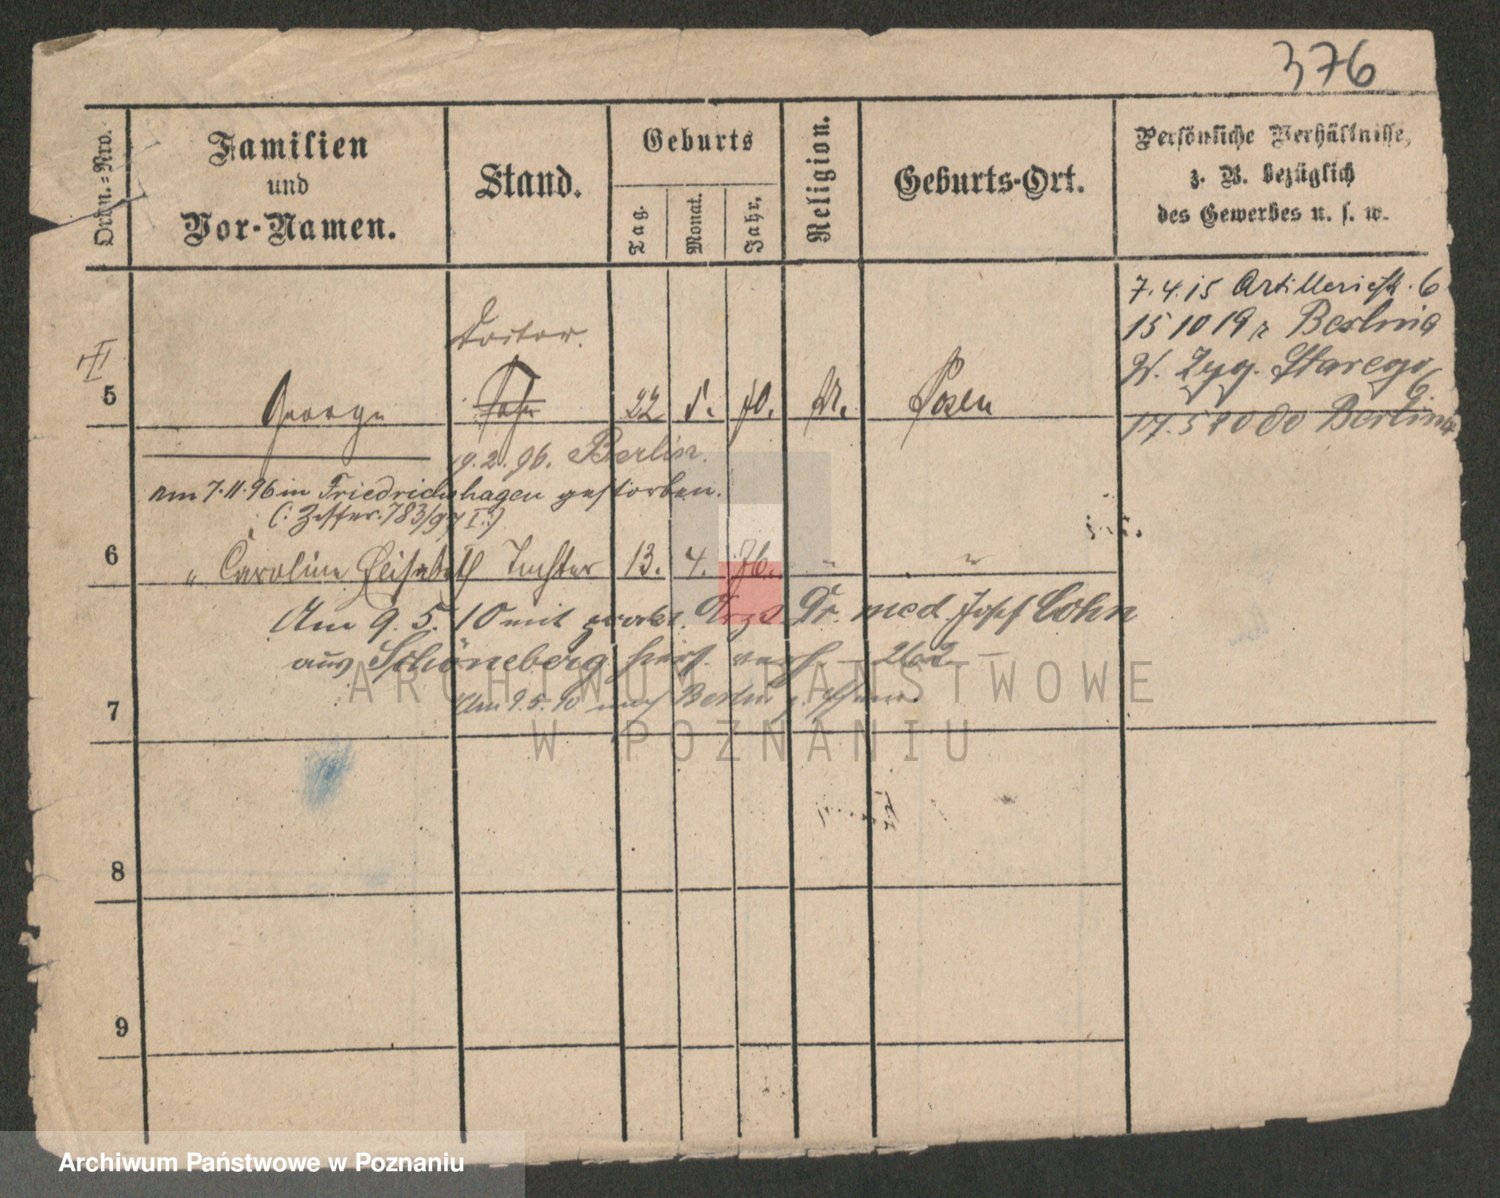 376
Ordn.-Nro.
Familien
und
Vor-Namen.
Stand.
Geburts
Tag.
Monat.
Jahr,
Religion.
Geburts-Ort.
Persönliche Verhältnisse,
z. B. bezüglich
des Gewerbes u. s. w.
7.4.15 Artilleriestr. 6
15 10 19 z Berlina
W. Zyg. Starego 6
17.5 20 do Berlina
Doctor.
5 George 22 Posen
9.2.96. Berlin.
am 7.11.96 in Friedrichshagen gestorben.
(: 783/97 I :)
6 " Caroline Elisabeth Tochter 13. 4. 76. " "
Am 9.5.10 mit prakt. Arzt Dr. med. Josef Cohn
aus Schöneberg hier verh. - 262 -
Am 9.5.10 nach Berlin
7
8
9
ARCHIWUM PAŃSTWOWE
W POZNANIU
Archiwum Państwowe w Poznaniu